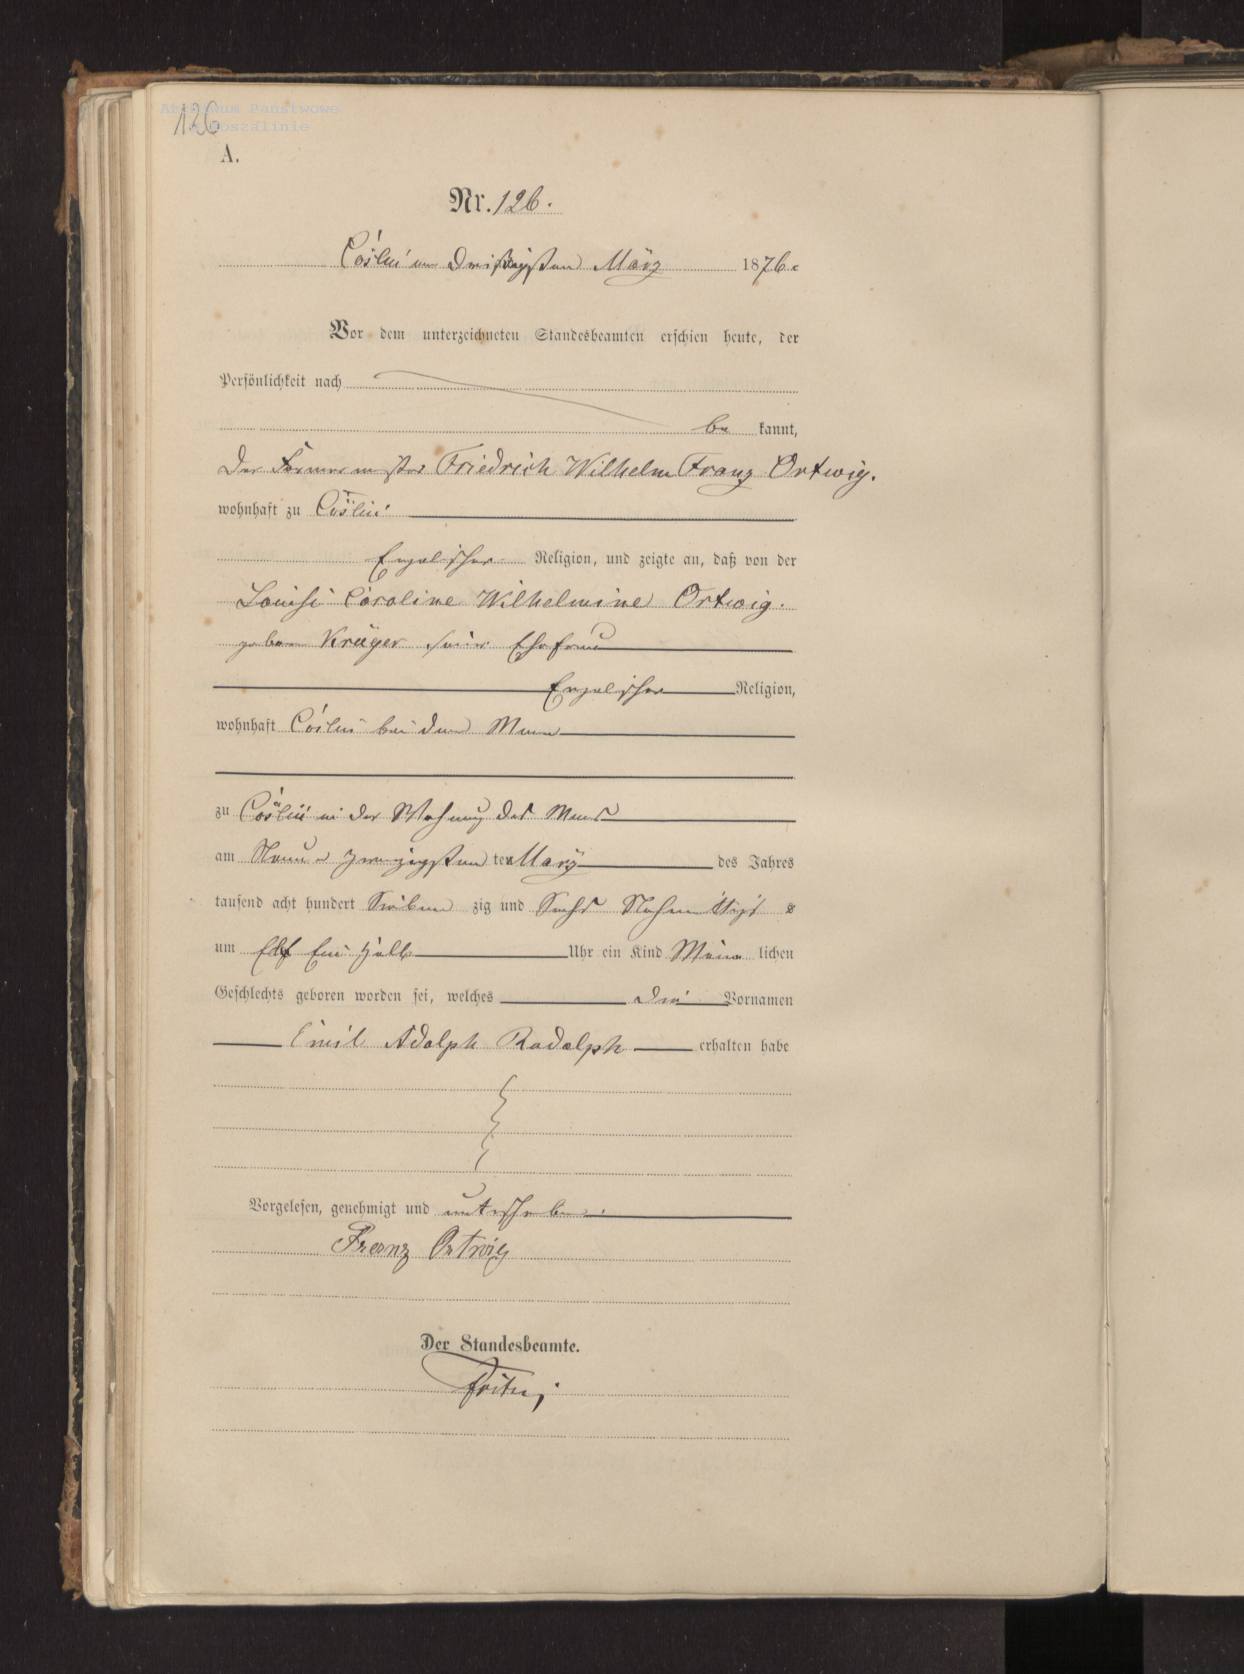 Archiwum Państwowe
w Koszalinie
126
A.
Nr. 126.
Cöslin am dreißigsten März 1876.
Vor dem unterzeichneten Standesbeamten erschien heute, der
Persönlichkeit nach
be kannt,
der Formermstr Friedrich Wilhelm Franz Ortwig.
wohnhaft zu Cöslin
Evgelischer Religion, und zeigte an, daß von der
Louise Caroline Wilhelmine Ortwig.
geboren Krüger seiner Ehefrau
Evgelischer Religion,
wohnhaft Cöslin bei dem Mann
zu Cöslin in der Wohnung des Manns
am Neun u zwanzigsten ten März des Jahres
tausend acht hundert Sieben zig und Sechs Nachmittags
um Elf Ein halb Uhr ein Kind Männ lichen
Geschlechts geboren worden sei, welches drei Vornamen
Emil Adolph Rudolph erhalten habe
Vorgelesen, genehmigt und unterschrieben.
Franz Ortwig
Der Standesbeamte.